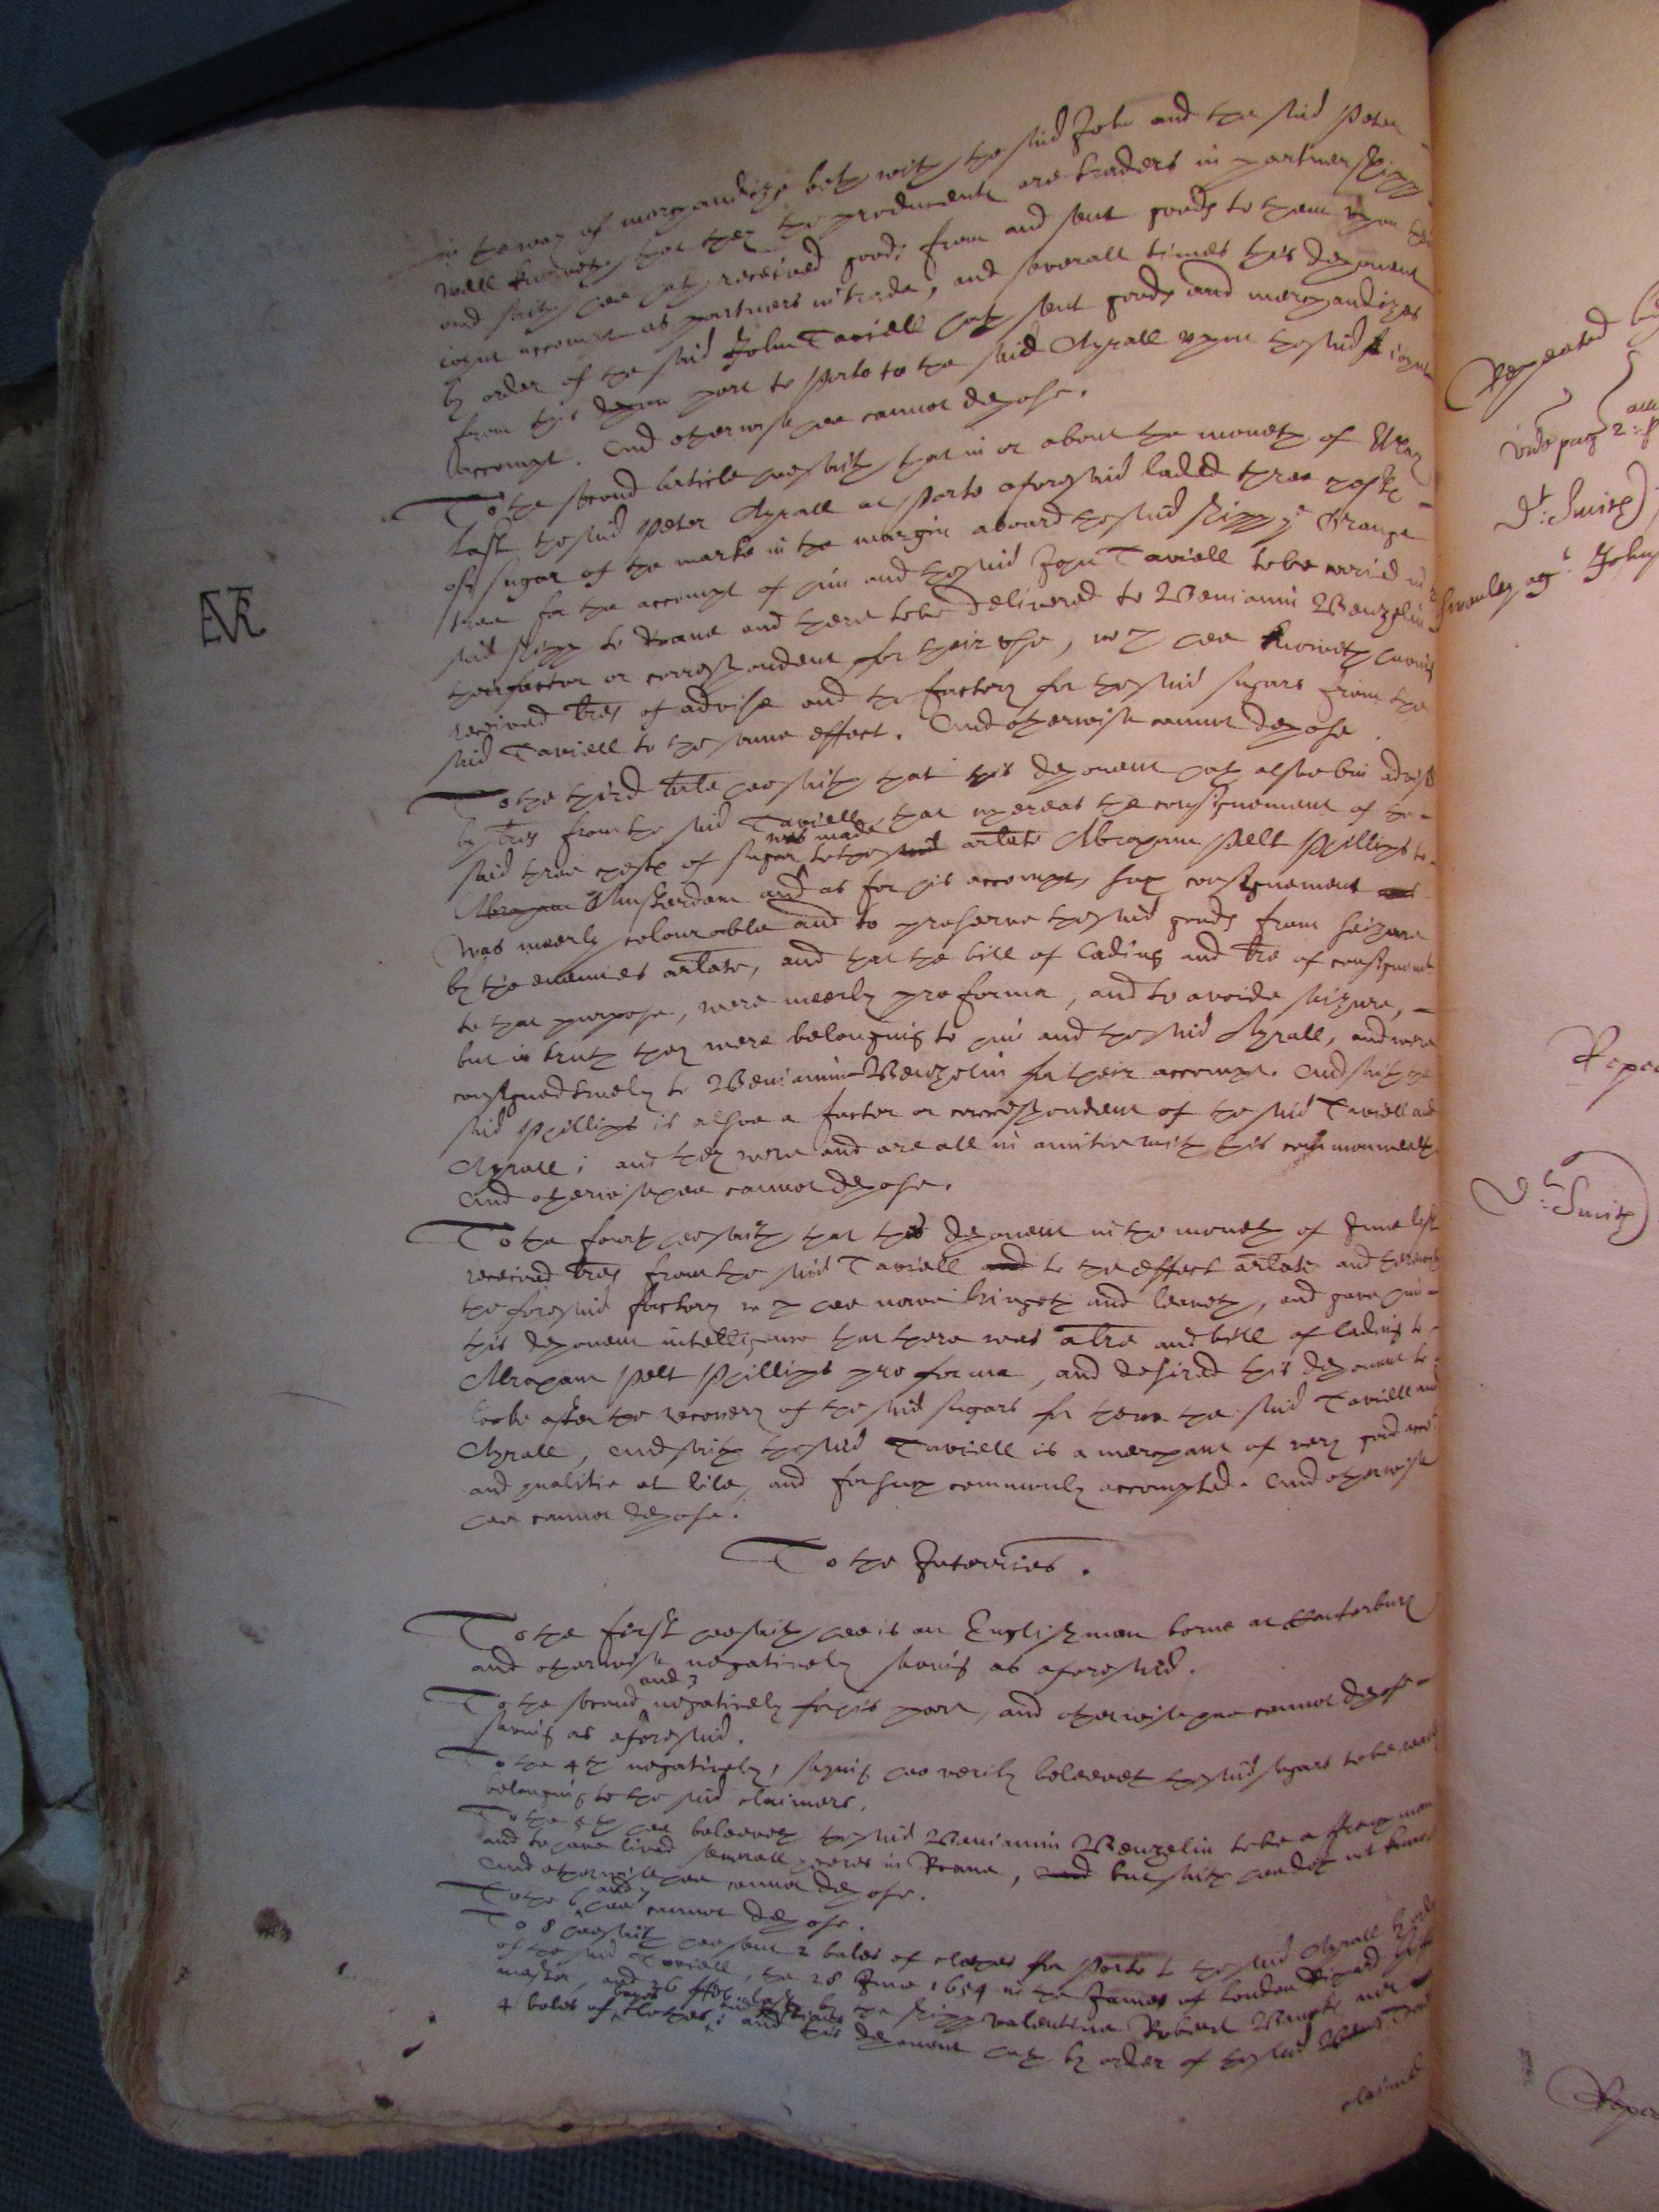 in the way of merchandize both with the said John and the said Peter
well knoweth that they the producents are traders in partnershipp
and saith hee hath received goods from and sent goods to them upon their
joynt accompt as partners in trade, and severall times this deponent
by order of the said John Taviell hath sent goods and merchandizes
from this depon port to Porto to the said Ayrall upon the said joynt
accompt. And otherwise hee cannot depose.
To the second article hee saith that in or about the moneth of May
last the said Peter Ayrall at Porto aforesaid laded three chests
of sugar of the marke in the margin aboard the said shipp ye Orange
tree for the accompt of him and the said John Taviell to be caried in ye
said shipp to Roane and there to be delivered to Beniamin Beuzelin
their factor or correspondent for their use, wch hee knoweth having
received tres of advise and the factory for the said sugars from the
said Taviell to the same effect. And otherwise cannot depose.
To the third arle hee saith that this deponent hath alsoe bin advised
by tres from the said Taviell, that whereas the consignement of the
was made
said three chests of sugar to the said arlate Abraham Pelt Phillips to
Abraham Amsterdam and as for his accompt, such consignement was
was meerly colourable and to preserve the said goods from seizure
by the enemies arlate, and that the bill of lading and tre of consignment
to that purpose, were meerly pro forma, and to avoide seizure,
but in truth they were belonging to him and the said Ayrall, and were
consigned truely to Beniamin Beuzelin for their accompt. And saith the
said Phillips is alsoe a factor or correspondent of the said Taviell and
Ayrall; and they were and are all in amitie with this commonwealth
And otherwise hee cannot depose.
To the fourth hee saith that this deponent in the moneth of June last
received tres from the said Taviell and to the effect arlate and therewith
the foresaid factory wch hee nowe bringeth and leaveth, and gave him
this deponent intelligence that there was a tre and bill of lading to
Abraham Pelt Phillips pro forma, and desired this deponent to
looke after the recovery of the said sugars for them the said Taviell and
Ayrall, And saith the said Taviell is a merchant of very good accot
and qualitie at Lile, and for such commonly accompted. And otherwise
hee cannot depose.
To the Interries.
To the first hee saith hee is an Englishman borne at Canterbury
and otherwise negatively saving as aforesaid.
and 3
To the second negatively for his part, and otherwise hee cannot depose
saving as aforesaid.
To the 4th negatively, saying hee verily beleeveth the said sugars to be really
belonging to the said claimers.
To the 5th hee beleeveth the said Beniamin Beuzelin to be a ffrenchman
and to have lived severall yeares in Roane, and but saith hee doth not knowe
And otherwise hee cannot depose.
and 7
To the 6 hee cannot depose.
To 8 hee saith hee sent 2 bales of clothes for Porto to the said Ayrall by order
of the said Taviell, the 28 June 1654 in the James of London Richard
master, and 26 by the shipp Valentine Robert mr
4 bales of clothes; and this deponent hath by order of the said
claimed
EAR
Repeated
vide pag 2:
Dr: Smith)
Swanley agt John
Repea
Dr: Smith)
Repea